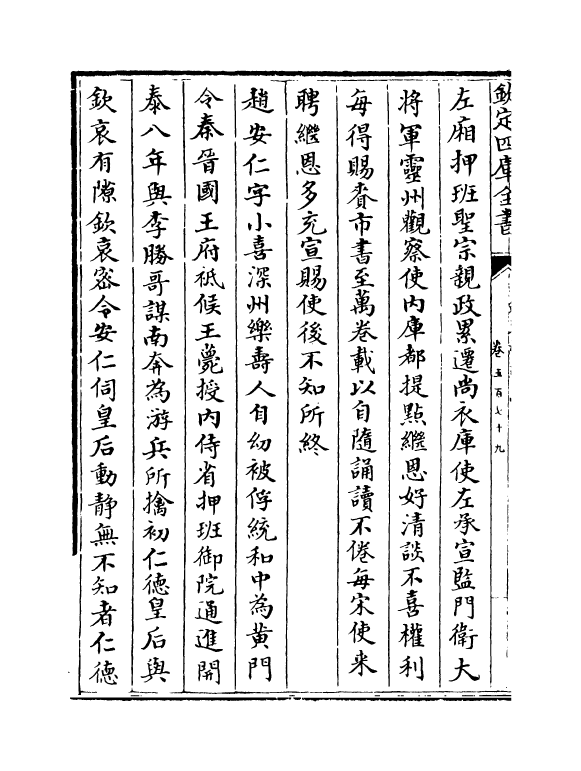 欽定四庫全書
卷五百七十九
左廂押班聖宗親政累遷尚衣庫使左承宣監門衛大
將軍靈州觀察使内庫都提點繼恩好清談不喜權利
每得賜賚市書至萬卷載以自隨誦讀不倦每宋使来
聘繼恩多充宣賜使後不知所終
趙安仁字小喜深州樂壽人自幼被俘統和中為黄門
令秦晉國王府祗候王薨授内侍省押班御院通進開
泰八年與李勝哥謀南奔為游兵所擒初仁德皇后與
欽哀有隙欽哀宻令安仁伺皇后動靜無不知者仁德